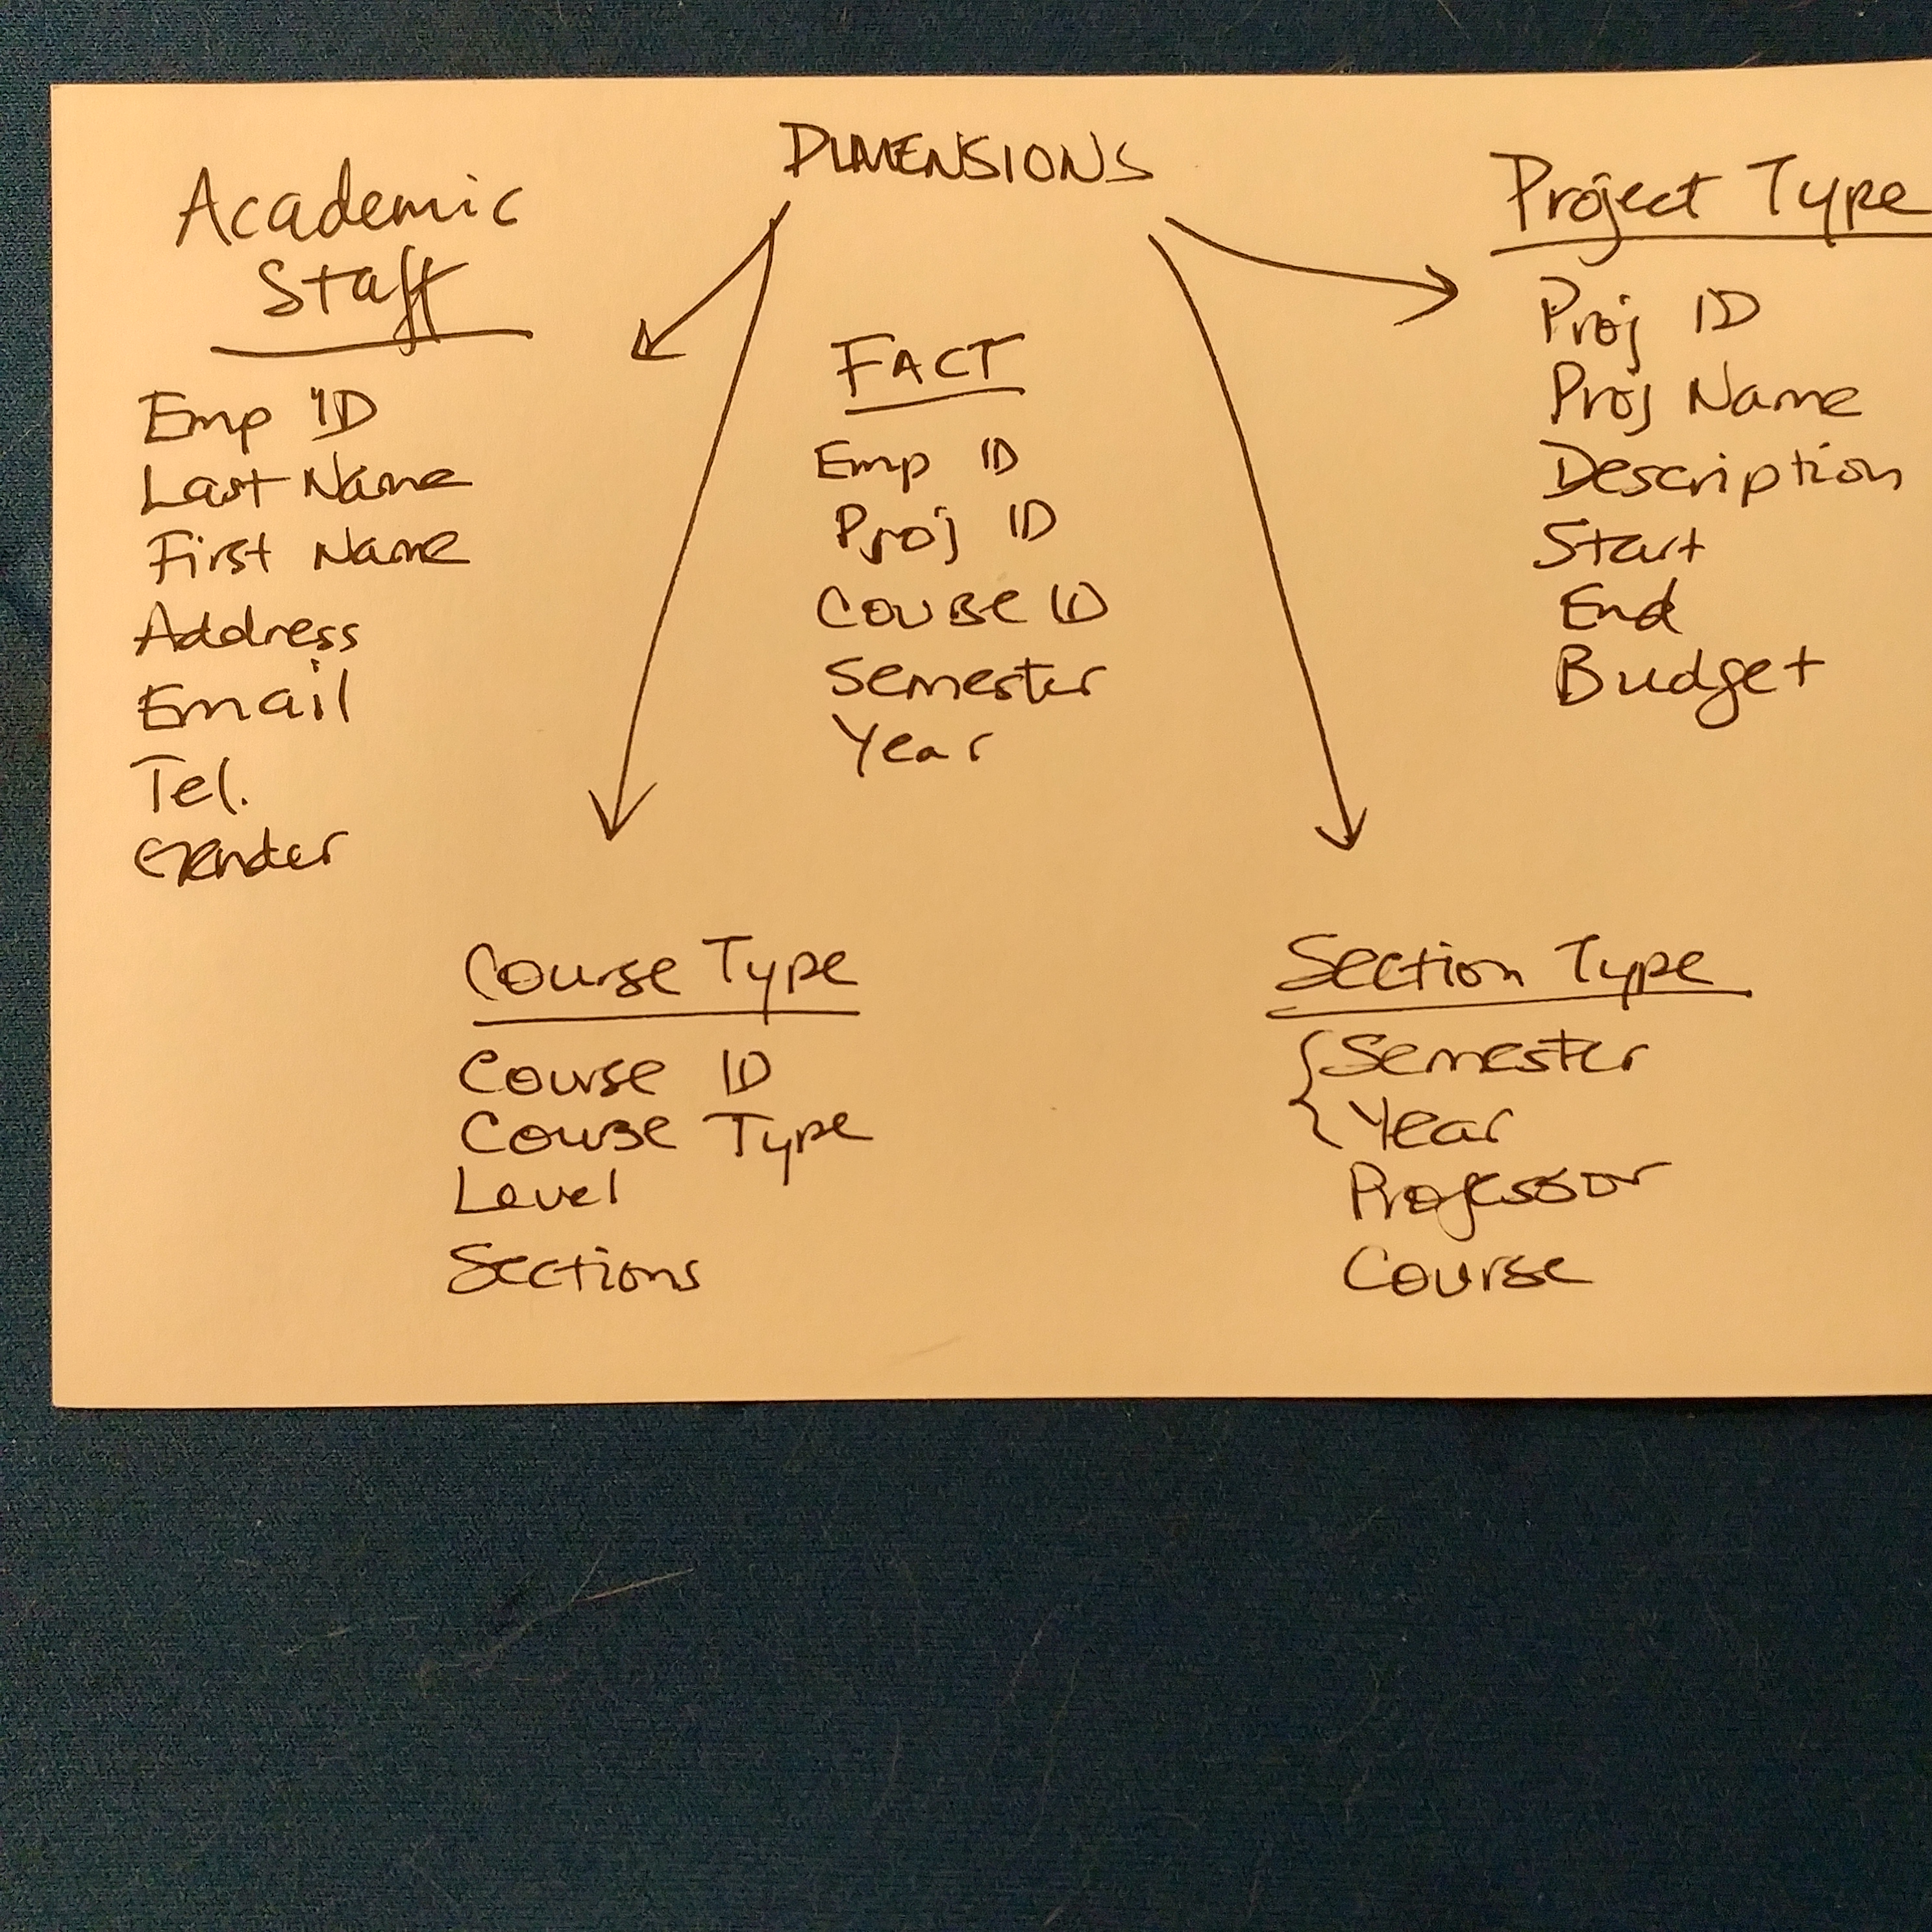 DIMENSIONS
Academic
Staff
Emp ID
Last Name
First Name
Address
Email
Tel.
Gender
FACT
Emp ID
Proj ID
Course ID
Semester
Year
Project Type
Proj ID
Proj Name
Description
Start
End
Budget
Course Type
Course ID
Course Type
Level
Sections
Section Type
Semester
Year
Professor
Course